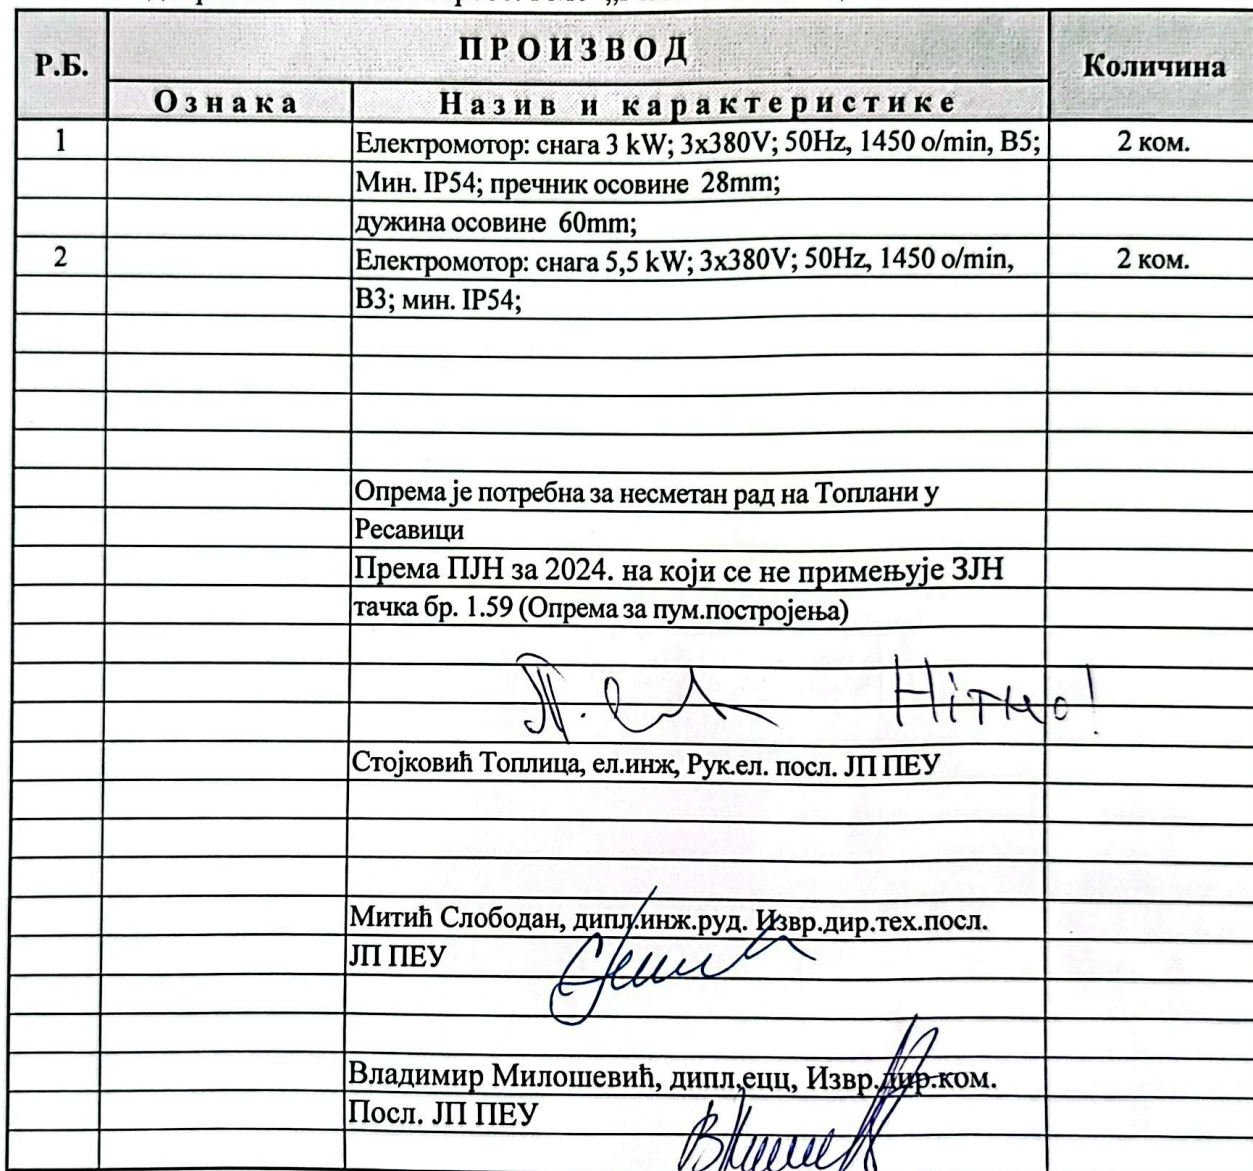 Р.Б.
ПРОИЗВОД
Количина
Ознака
Назив и карактеристике
1 Електромотор: снага 3 kW; 3x380V; 50Hz, 1450 o/min, B5; 2 ком.
Мин. IP54; пречник осовине 28mm;
дужина осовине 60mm;
2 Електромотор: снага 5,5 kW; 3x380V; 50Hz, 1450 o/min, 2 ком.
B3; мин. IP54;
Опрема је потребна за несметан рад на Топлани у
Ресавици
Према ПЈН за 2024. на који се не примењује ЗЈН
тачка бр. 1.59 (Опрема за пум.постројења)
Hiтно!
Стојковић Топлица, ел.инж, Рук.ел. посл. ЈП ПЕУ
Митић Слободан, дипл.инж.руд. Извр.дир.тех.посл.
ЈП ПЕУ
Владимир Милошевић, дипл,ецц, Извр.дир.ком.
Посл. ЈП ПЕУ